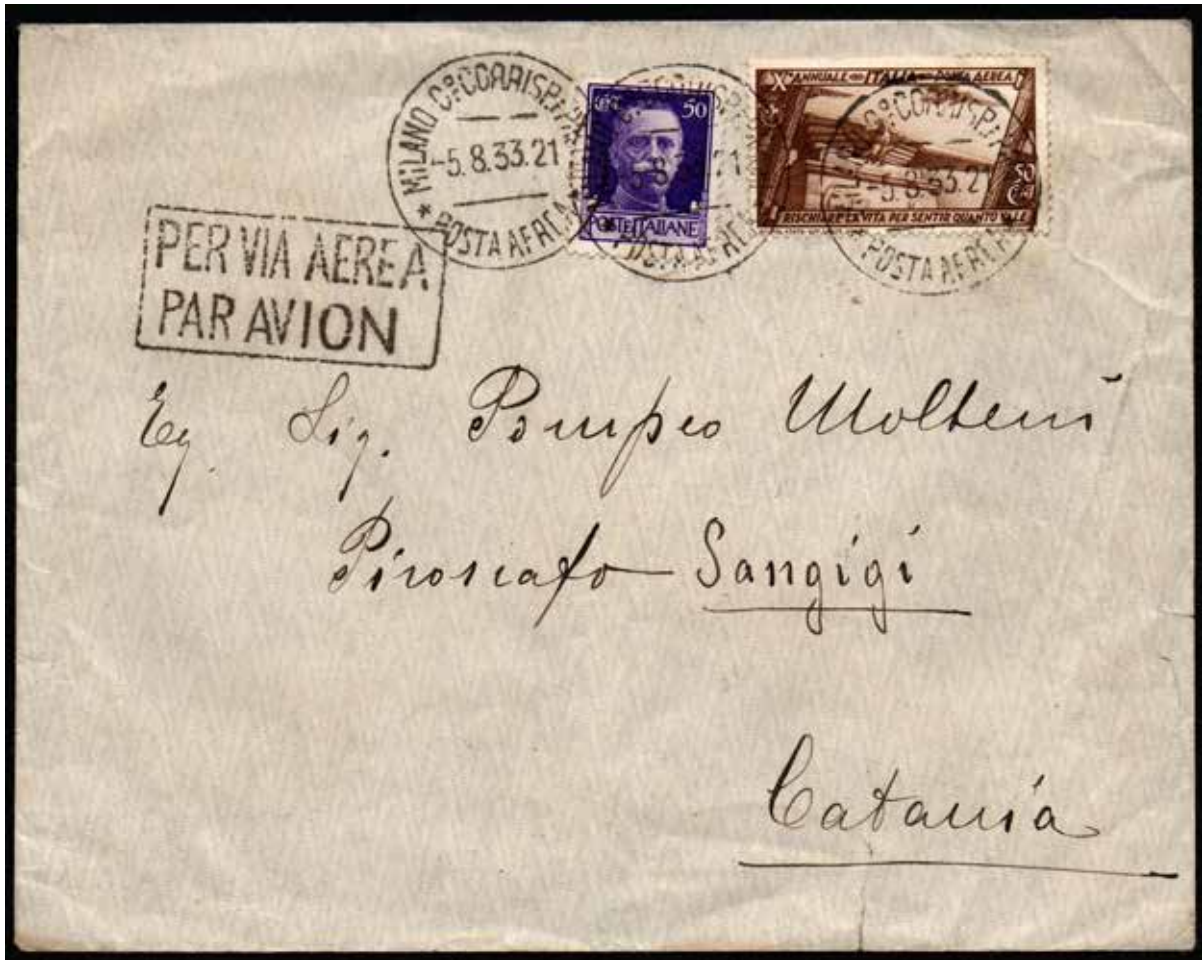 MILANO Co CORRISP. P.
-5.8.33.21
* POSTA AEREA
50
POSTE ITALIANE
-8- 21
POSTA AEREA
X° ANNUALE ITALIA POSTA AEREA
50
RISCHIARE LA VITA PER SENTIR QUANTO VALE
CORRISP.
-5.8.33.21
POSTA AEREA
PER VIA AEREA
PAR AVION
Eg. Sig. Pompeo Molteni
Piroscafo Sangigi
Catania